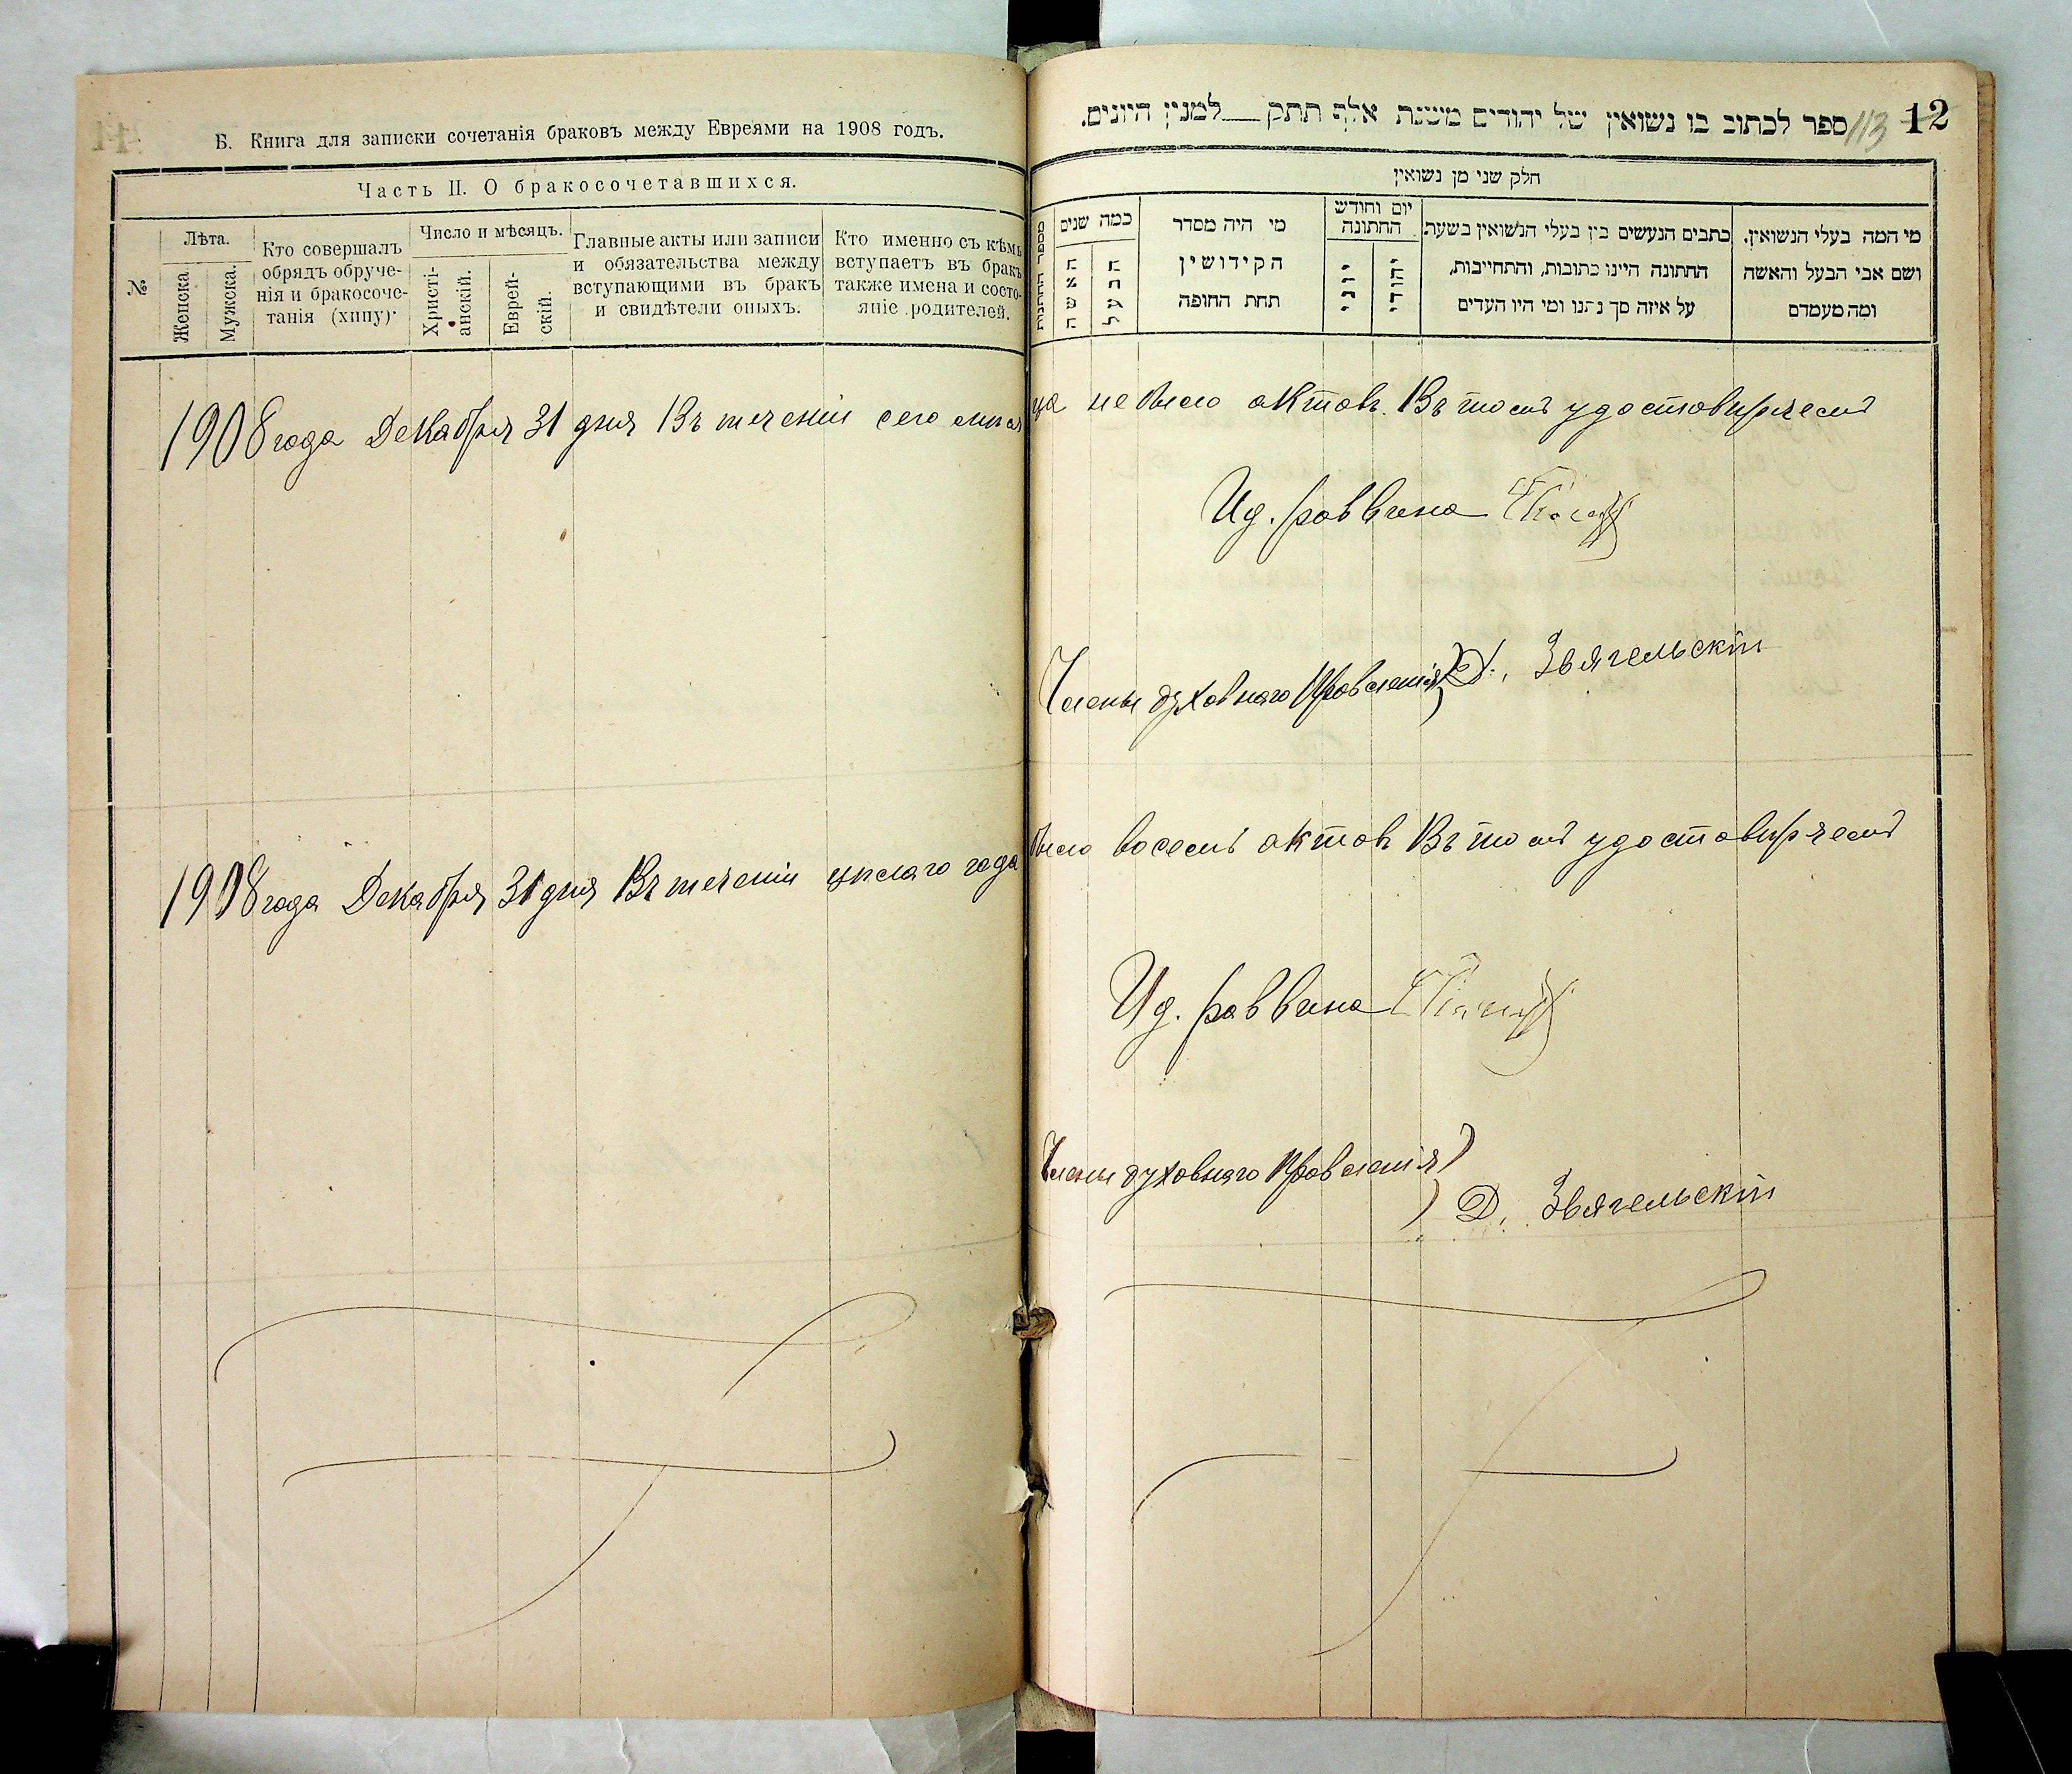 Б. Книга для записки сочетанія браковъ между Евреями на 1908 годъ.
Часть II. О бракосочетавшихся.
№
Лѣта.
Женска.
Мужска.
Кто совершалъ
обрядъ обруче-
нія и бракосоче-
танія (хипу)
Число и мѣсяцъ.
Христі-
анскій.
Еврей-
скій.
Главные акты или записи
и обязательства между
вступающими въ бракъ
и свидѣтели оныхъ.
Кто именно съ кѣмъ
вступаетъ въ бракъ
также имена и состо-
яніе родителей.
ספר לכתוב בו נשואין של יהודים משנת אלף תתק___למנין היונים.
113
12
חלק שני מן נשואין
מספר החתונות
כמה שנים
האשה
הבעל
מי היה מסדר
הקידושין
תחת החופה
יום וחודש
החתונה
יוני
יהודי
כתבים הנעשים בין בעלי הנשואין בשעת
החתונה היינו כתובות, והתחייבות,
על איזה סך נתנו ומי היו העדים
מי המה בעלי הנשואין.
ושם אבי הבעל והאשה
ומה מעמדם
1908 года Декабря 31 дня Въ теченіи сего мѣсяца не было актовъ. Въ томъ удостовѣряемъ
Ид. раввина
Члены духовнаго Правленія) Д. Звягельскій
1908 года Декабря 31 дня Въ теченіи цѣлаго года было восемь актовъ Въ томъ удостовѣряемъ
Ид. раввина
Члены духовнаго Правленія)
) Д. Звягельскій